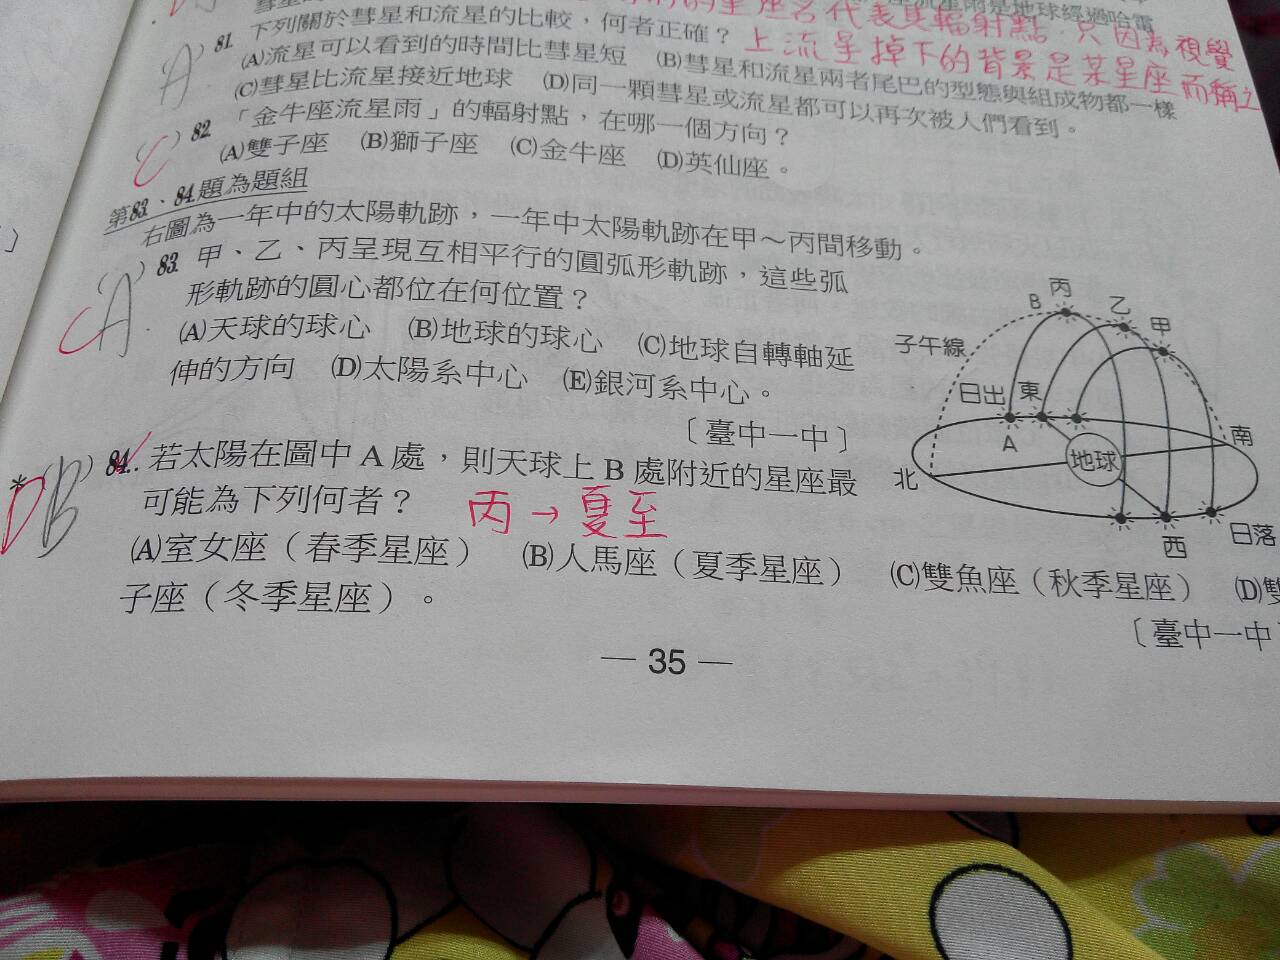 的星座名代表其輻射點，只因為視覺
上流星掉下的背景是某星座而稱之
流星雨是地球經過哈雷
81. 下列關於彗星和流星的比較，何者正確？
(A)流星可以看到的時間比彗星短 (B)彗星和流星兩者尾巴的型態與組成物都一樣
(C)彗星比流星接近地球 (D)同一顆彗星或流星都可以再次被人們看到。
A
82. 「金牛座流星雨」的輻射點，在哪一個方向？
(A)雙子座 (B)獅子座 (C)金牛座 (D)英仙座。
C
第83.、84.題為題組
右圖為一年中的太陽軌跡，一年中太陽軌跡在甲～丙間移動。
83. 甲、乙、丙呈現互相平行的圓弧形軌跡，這些弧
形軌跡的圓心都位在何位置？
(A)天球的球心 (B)地球的球心 (C)地球自轉軸延
伸的方向 (D)太陽系中心 (E)銀河系中心。
〔臺中一中〕
C A
*84. 若太陽在圖中 A 處，則天球上 B 處附近的星座最
可能為下列何者？ 丙→夏至
(A)室女座（春季星座） (B)人馬座（夏季星座） (C)雙魚座（秋季星座） (D)雙
子座（冬季星座）。
〔臺中一中
D B
丙
B
乙
甲
子午線
日出 東
A
南
地球
北
西
日落
— 35 —